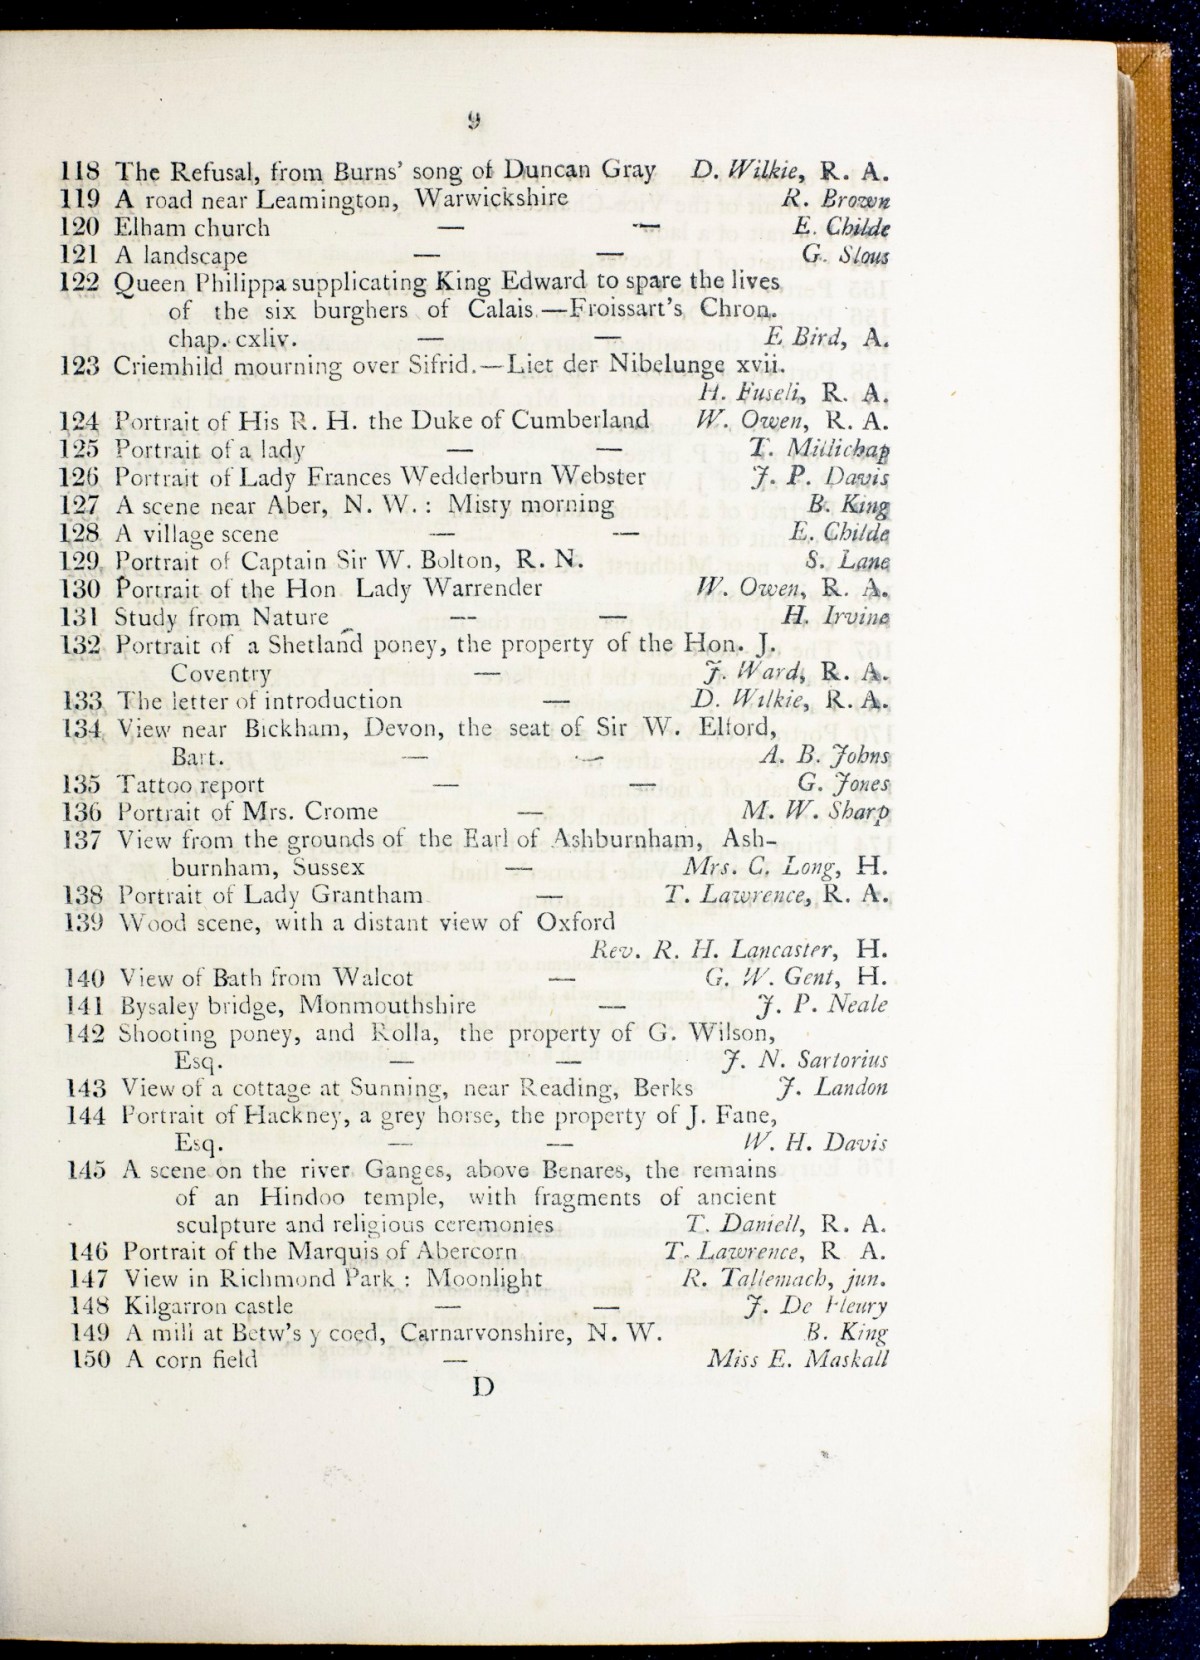 9
118 The Refusal, from Burns' song of Duncan Gray D. Wilkie, R. A.
119 A road near Leamington, Warwickshire R. Brown
120 Elham church — — E. Childe
121 A landscape — — G. Slous
122 Queen Philippa supplicating King Edward to spare the lives
of the six burghers of Calais.—Froissart's Chron.
chap. cxliv. — — E Bird, A.
123 Criemhild mourning over Sifrid.—Liet der Nibelunge xvii.
H. Fuseli, R. A.
124 Portrait of His R. H. the Duke of Cumberland W. Owen, R. A.
125 Portrait of a lady — — T. Millichap
126 Portrait of Lady Frances Wedderburn Webster J. P. Davis
127 A scene near Aber, N. W. : Misty morning B. King
128 A village scene — — E. Childe
129 Portrait of Captain Sir W. Bolton, R. N. S. Lane
130 Portrait of the Hon Lady Warrender W. Owen, R. A.
131 Study from Nature — — H. Irvine
132 Portrait of a Shetland poney, the property of the Hon. J.
Coventry — J. Ward, R. A.
133 The letter of introduction — D. Wilkie, R. A.
134 View near Bickham, Devon, the seat of Sir W. Elford,
Bart. — — A. B. Johns
135 Tattoo report — — G. Jones
136 Portrait of Mrs. Crome — M. W. Sharp
137 View from the grounds of the Earl of Ashburnham, Ash-
burnham, Sussex — Mrs. C. Long, H.
138 Portrait of Lady Grantham — T. Lawrence, R. A.
139 Wood scene, with a distant view of Oxford
Rev. R. H. Lancaster, H.
140 View of Bath from Walcot — G. W. Gent, H.
141 Bysaley bridge, Monmouthshire — J. P. Neale
142 Shooting poney, and Rolla, the property of G. Wilson,
Esq. — — J. N. Sartorius
143 View of a cottage at Sunning, near Reading, Berks J. Landon
144 Portrait of Hackney, a grey horse, the property of J. Fane,
Esq. — — W. H. Davis
145 A scene on the river Ganges, above Benares, the remains
of an Hindoo temple, with fragments of ancient
sculpture and religious ceremonies T. Daniell, R. A.
146 Portrait of the Marquis of Abercorn T. Lawrence, R A.
147 View in Richmond Park : Moonlight R. Tallemach, jun.
148 Kilgarron castle — — J. De Fleury
149 A mill at Betw's y coed, Carnarvonshire, N. W. B. King
150 A corn field — Miss E. Maskall
D